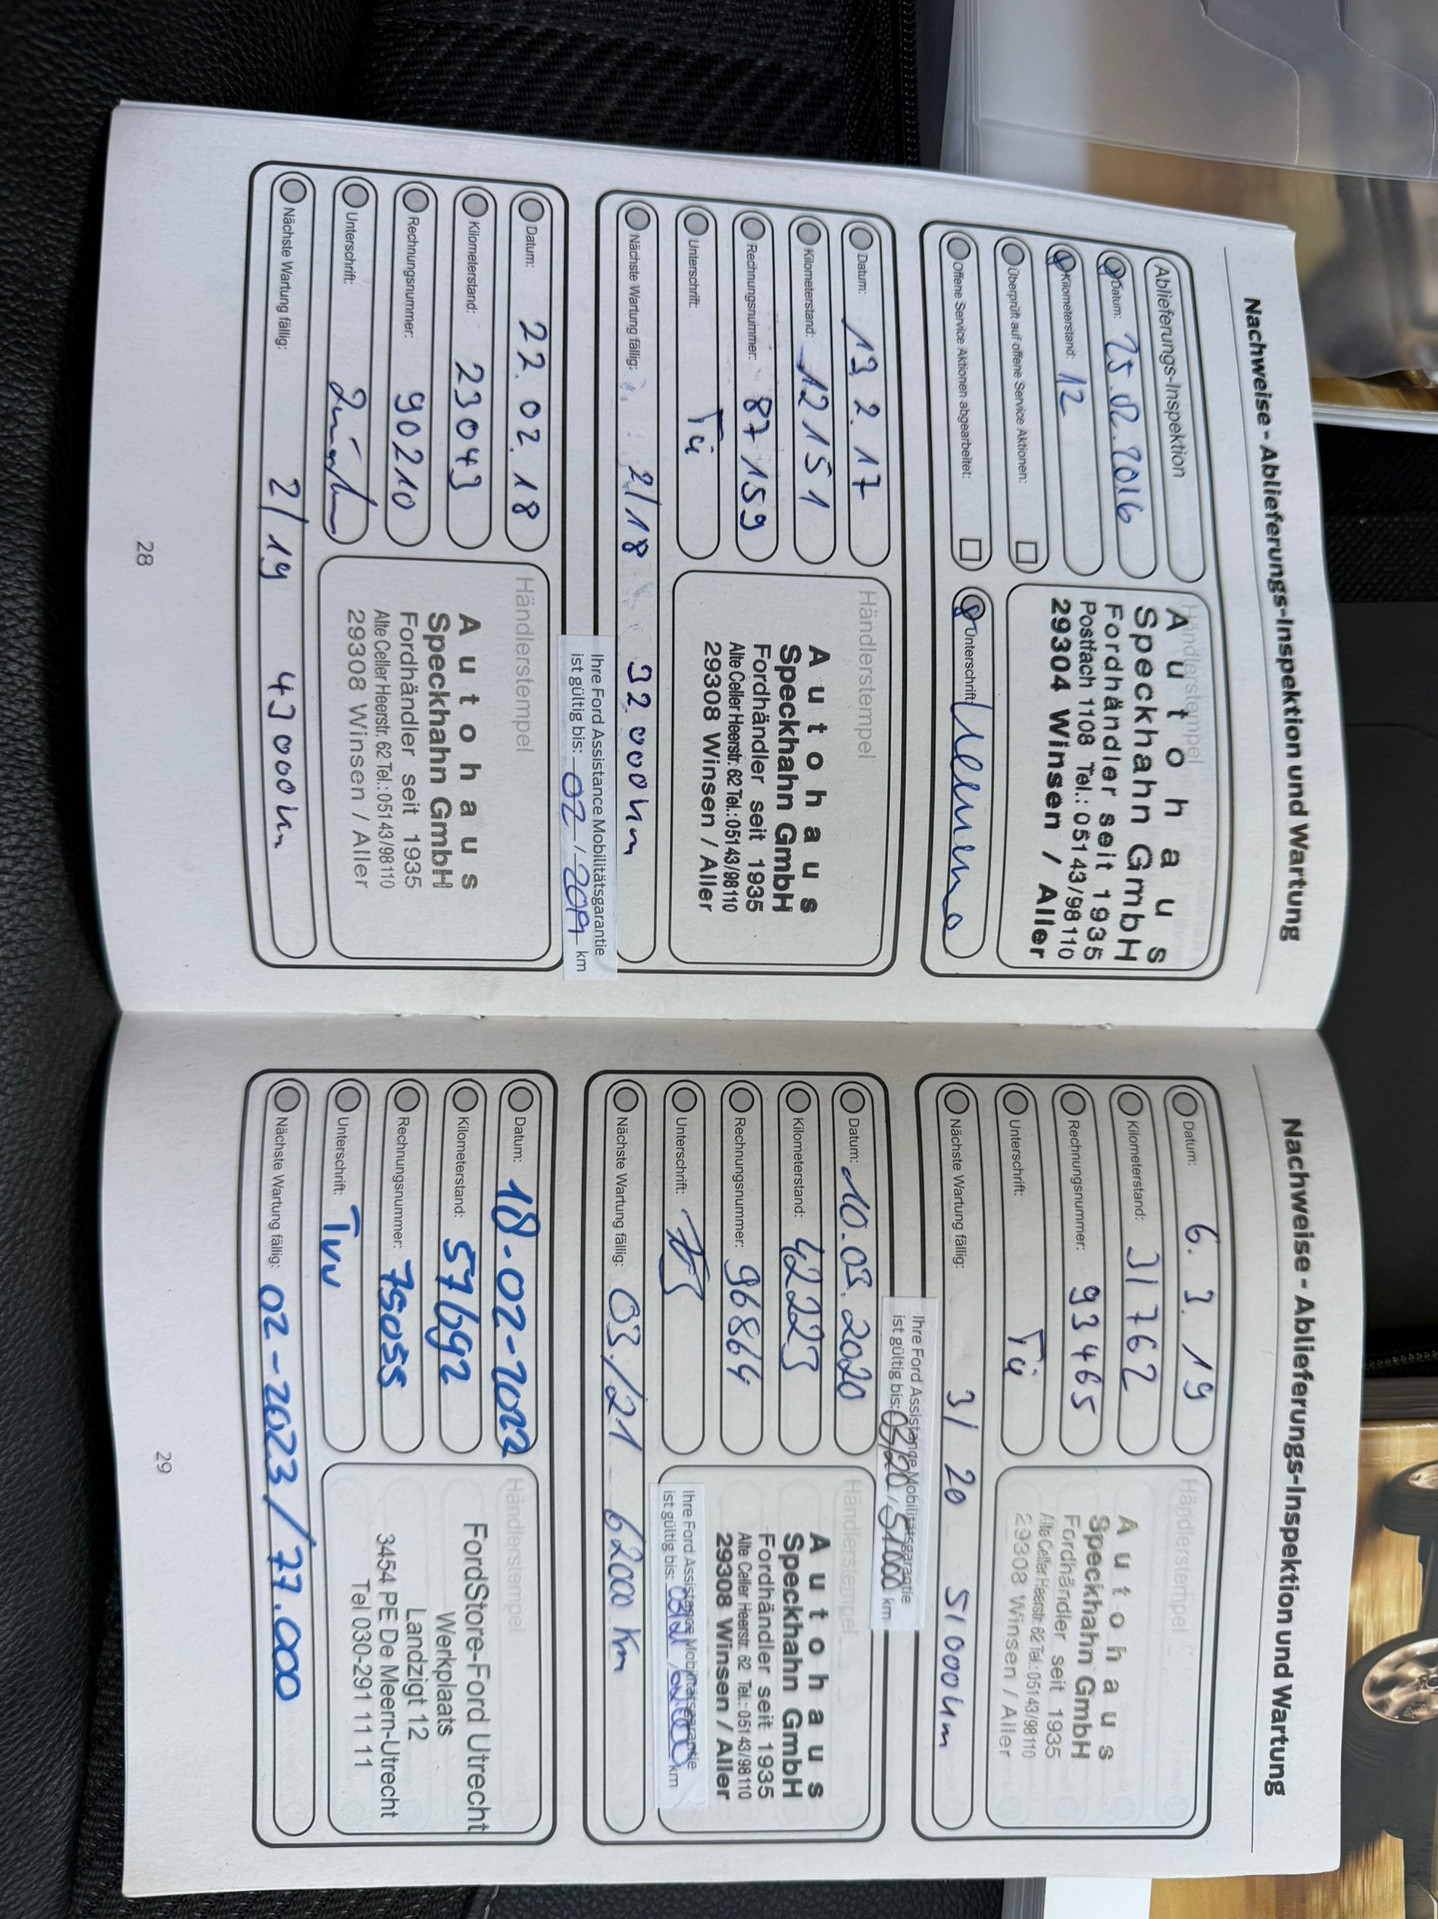 Nachweise - Ablieferungs-Inspektion und Wartung
Ablieferungs-Inspektion
Datum: 25.02.2016
Kilometerstand: 12
Überprüft auf offene Service Aktionen:
Offene Service Aktionen abgearbeitet:
Händlerstempel
Autohaus
Speckhahn GmbH
Fordhändler seit 1935
Postfach 1108 Tel.: 05143/98110
29304 Winsen / Aller
Unterschrift:
Datum: 13 2. 17
Kilometerstand: 12151
Rechnungsnummer: 87159
Unterschrift: Tü
Händlerstempel
Autohaus
Speckhahn GmbH
Fordhändler seit 1935
Alte Celler Heerstr. 62 Tel.: 05143/98110
29308 Winsen / Aller
Nächste Wartung fällig: 2/18 32000km
Ihre Ford Assistance Mobilitätsgarantie
ist gültig bis: 02 / 2019 km
Datum: 22.02.18
Kilometerstand: 23049
Rechnungsnummer: 90210
Unterschrift:
Händlerstempel
Autohaus
Speckhahn GmbH
Fordhändler seit 1935
Alte Celler Heerstr. 62 Tel.: 05143/98110
29308 Winsen / Aller
Nächste Wartung fällig: 2/19 43000km
28
Nachweise - Ablieferungs-Inspektion und Wartung
Datum: 6. 3. 19
Kilometerstand: 31762
Rechnungsnummer: 93465
Unterschrift: Tü
Händlerstempel
Autohaus
Speckhahn GmbH
Fordhändler seit 1935
Alte Celler Heerstr. 62 Tel.: 05143/98110
29308 Winsen / Aller
Nächste Wartung fällig: 3/20 51000km
Ihre Ford Assistance Mobilitätsgarantie
ist gültig bis: 03/20 / 51000 km
Datum: 10.03.2020
Kilometerstand: 42223
Rechnungsnummer: 96864
Unterschrift:
Händlerstempel
Autohaus
Speckhahn GmbH
Fordhändler seit 1935
Alte Celler Heerstr. 62 Tel.: 05143/98110
29308 Winsen / Aller
Ihre Ford Assistance Mobilitätsgarantie
ist gültig bis: 03/21 / 62000 km
Nächste Wartung fällig: 03/21 62000 Km
Datum: 18-02-2022
Kilometerstand: 57692
Rechnungsnummer: 75055
Unterschrift: Tvv
Händlerstempel
FordStore-Ford Utrecht
Werkplaats
Landzigt 12
3454 PE De Meern-Utrecht
Tel 030-291 11 11
Nächste Wartung fällig: 02-2023/77.000
29